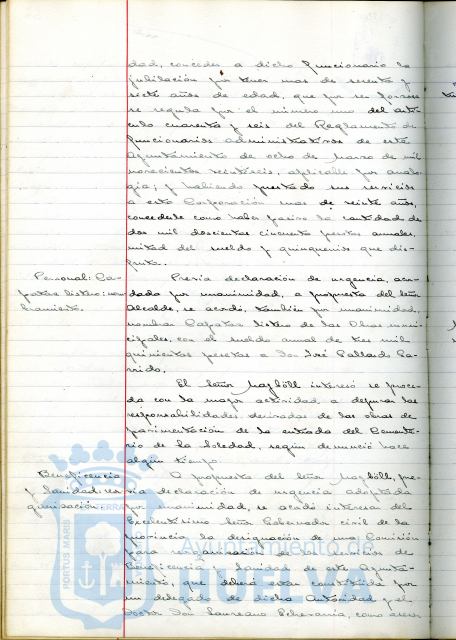 dad, conceder a dicho funcionario la
jubilación por tener mas de sesenta y
siete años de edad, que por ser forzosa
se regula por el número uno del artí-
culo cuarenta y seis del Reglamento de
funcionarios administrativos de este
Ayuntamiento de ocho de Marzo de mil
novecientos veintiséis, aplicable por analo-
gía; y habiendo prestado sus servicios
a esta Corporación mas de veinte años,
concederle como haber pasivo la cantidad de
dos mil doscientas cincuenta pesetas anuales,
mitad del sueldo y quinquenios que dis-
fruta.
Personal: Ca-
pataz listero: nom-
bramiento.
Previa declaración de urgencia, acor-
dada por unanimidad, a propuesta del Señor
Alcalde, se acordó, también por unanimidad,
nombrar Capataz listero de las Obras muni-
cipales, con el sueldo anual de tres mil
quinientas pesetas a Don José Gallardo Ga-
rrido.
El Señor Mayböll interesó se proce-
da con la mayor actividad, a depurar las
responsabilidades, derivadas de las obras de
pavimentación de la entrada del Cemente-
rio de la Soledad, según denunció hace
algún tiempo.
Beneficencia
y Sanidad: reor-
ganización.
A propuesta del Señor Mayböll, pre-
via declaración de urgencia adoptada
por unanimidad, se acordó interesar del
Excelentísimo Señor Gobernador civil de la
provincia la designación de una Comisión
para reorganización de los servicios de
Beneficencia y Sanidad de este Ayunta-
miento, que deberá estar constituída por
un delegado de dicha Autoridad y el
Doctor Don Laureano Echevarría, como
PORTUS MARIS
Ayuntamiento de
HUELVA